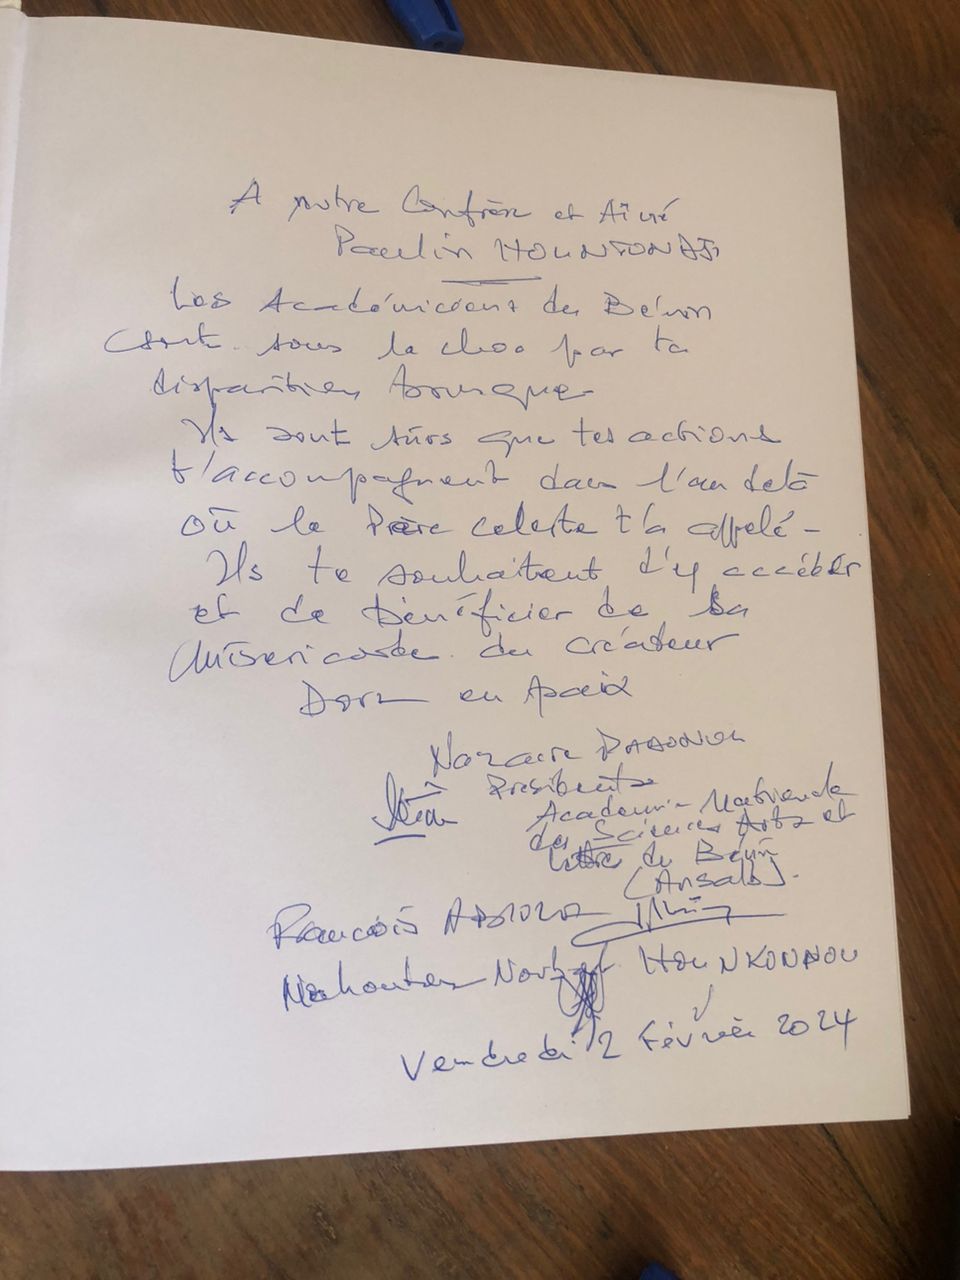 A notre Confrère et Aîné
Paulin HOUNTONDJI
Les Académiciens du Bénin
sont sous le choc par ta
disparition brusque
Ils sont sûrs que tes actions
t'accompagnent dans l'au delà
où le Père celeste t'a appelé -
Ils te souhaitent d'y accéder
et de bénéficier de la
Misericorde du créateur
Dors en paix
Nazaire PADONOU
Président
Academie Nationale
des Sciences Arts et
Lettres du Bénin
(Ansalb).
François ABIOLA
Mahouton Norbert HOUNKONNOU
Vendredi 2 Février 2024